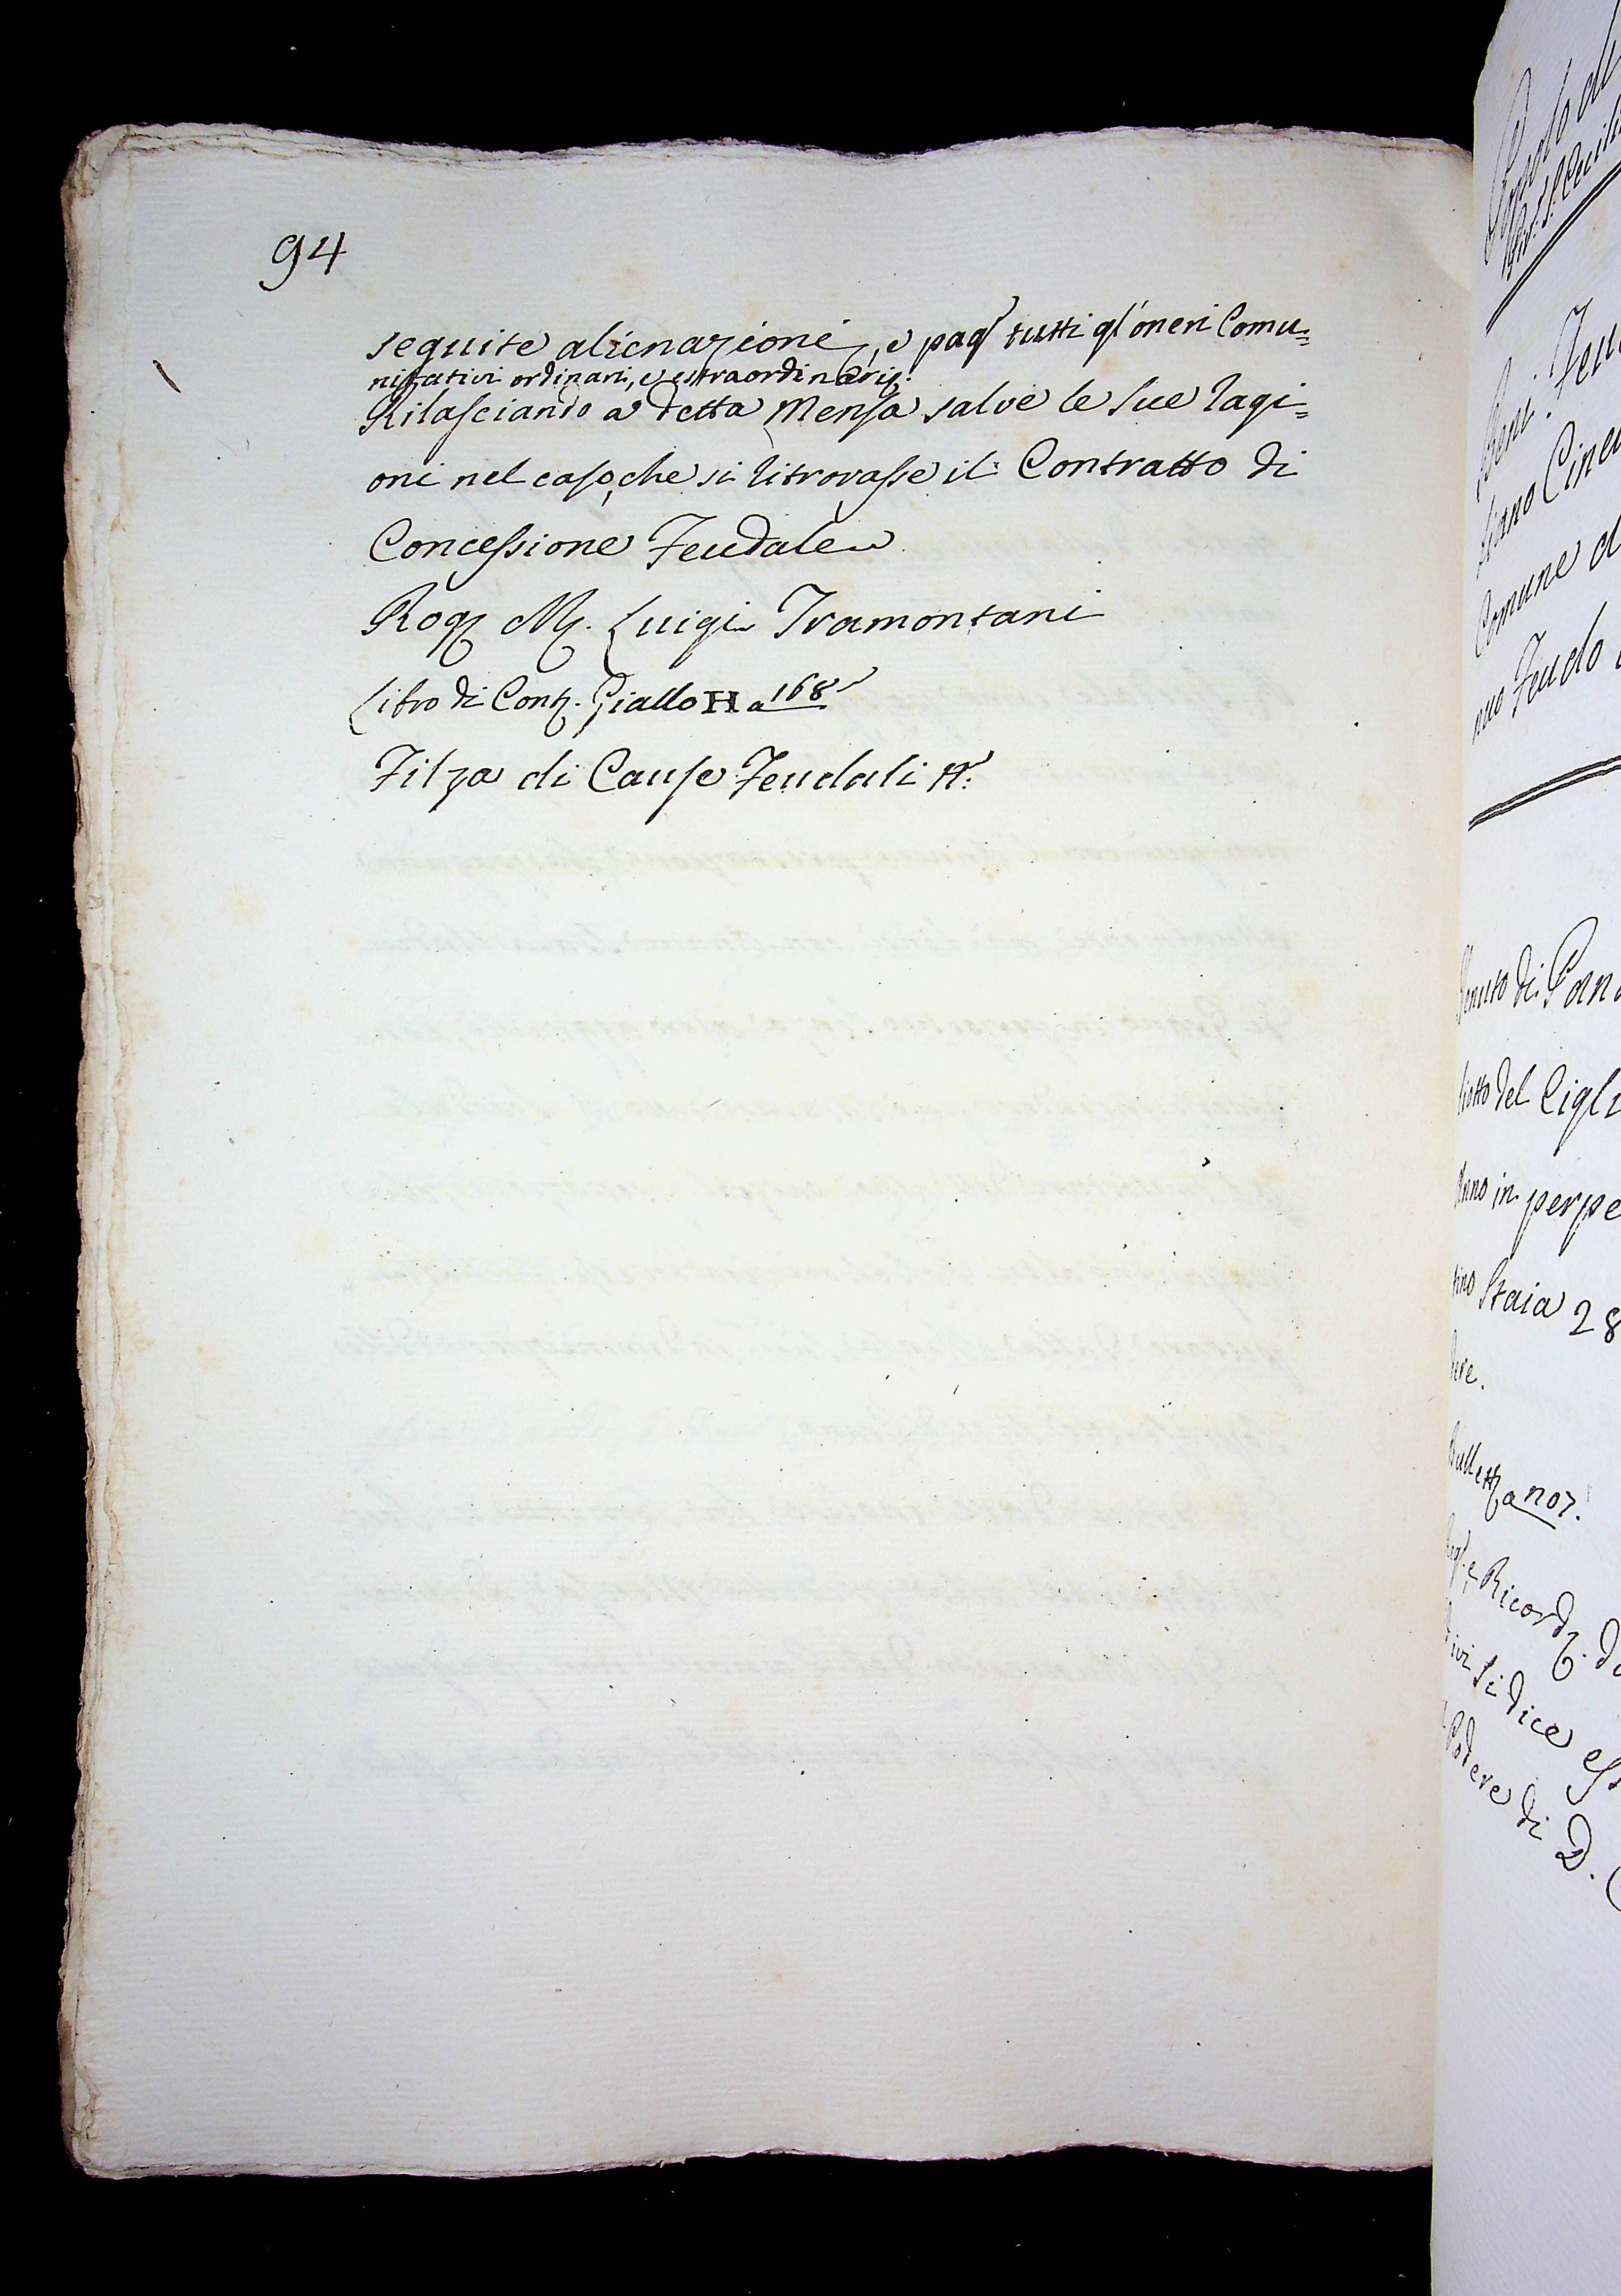 94
seguite alienazioni, e pag. tutti gl'oneri Comu=
nitativi ordinari, e estraordinarij.
Rilasciando a detta Mensa salve le sue ragi=
oni nel caso, che si ritrovasse il Contratto di
Concessione Feudale
Rog. M. Luigi Tramontani
Libro di Contr. Giallo H a 168
Filza di Cause Feudali N.
Feu
Comune d
Feudo
di Pan
del Cigli
Anno in perpe
Staia 28
ere.
a no7.
e Ricord. d
ivi si dice ess
Podere di D. C